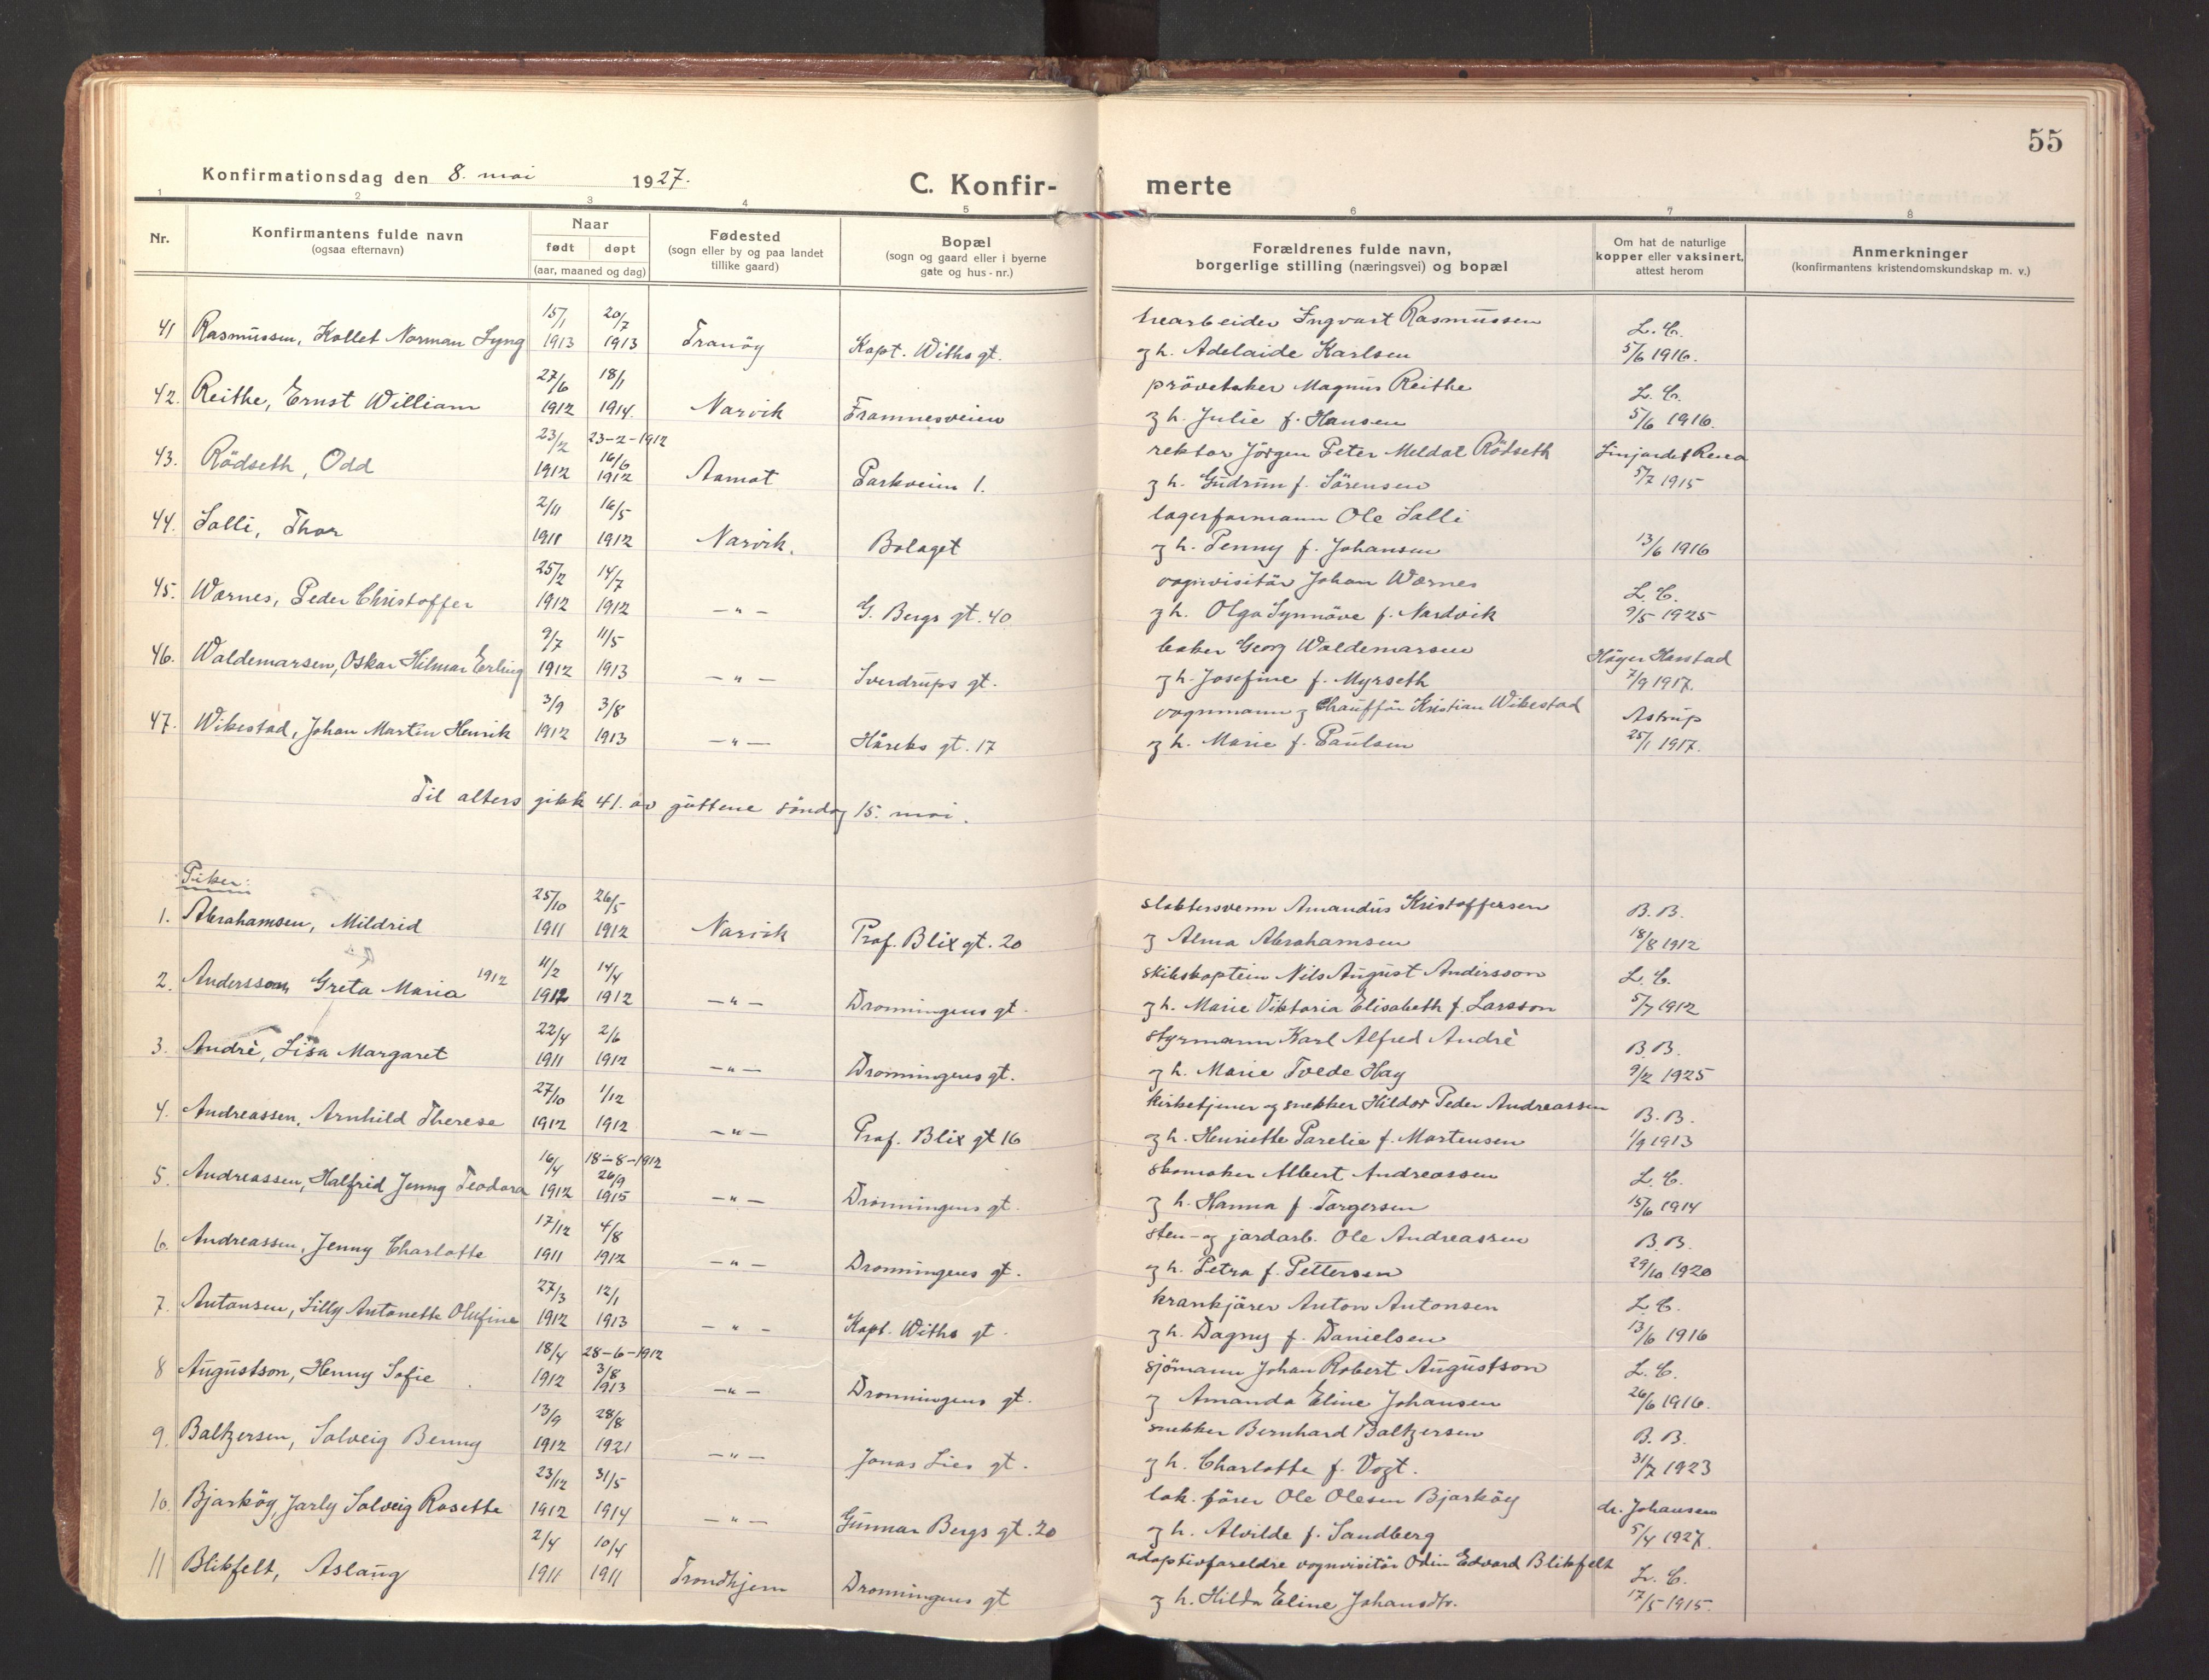 55
Konfirmationsdag den 8. mai 1927.
C. Konfir- merte
1 2 3 4 5 6 7 8
Nr.
Konfirmantens fulde navn
(ogsaa efternavn)
Naar
født døpt
(aar, maaned og dag)
Fødested
(sogn eller by og paa landet
tillike gaard)
Bopæl
(sogn og gaard eller i byerne
gate og hus-nr.)
Forældrenes fulde navn,
borgerlige stilling (næringsvei) og bopæl
Om hat de naturlige
kopper eller vaksinert,
attest herom
Anmerkninger
(konfirmantens kristendomskundskap m. v.)
15/1 20/7 Ingvart Rasmussen L. C.
41 Rasmussen, Kollet Norman Lyng 1913 1913 Tranöy Kapt. Withs gt. og h. Adelaide Karlsen 5/6 1916.
27/6 18/1 prövetaker Magnus Reithe L. C.
42. Reithe, Ernst William 1912 1914. Narvik Framnesveien og h. Julie f. Hansen 5/6 1916.
23/2 23-2-1912 rektor Jörgen Peter Meldal Rödseth
43. Rödseth, Odd 1912 16/6 1912 Aamot Parkveien 1. og h. Gudrun f. Sörensen 5/7 1915
2/11 16/5 lagerformann Ole Salli
44. Salli, Thor 1911 1912 Narvik. Bolaget og h. Penny f. Johansen 13/6 1916
25/2 14/7 vognvisitör Johan Wærnes L. C.
45. Wærnes, Peder Christoffer 1912 1912 —"— G. Bergs gt. 40 og h. Olga Synnöve f. Nordvik 9/5 1925
9/7 11/5 baker Georg Waldemarsen Höyer Harstad
46. Waldemarsen, Oskar Hilmar Erling 1912 1913 —"— Sverdrups gt. og h. Josefine f. Myrseth 7/9 1917.
3/9 3/8 vognmann og Chaufför Kristian Wikestad Astrup
47. Wikestad, Johan Martin Henrik 1912 1913 —"— Håreks gt. 17 og h. Marie f. Paulsen 25/1 1917.
Til alters gikk 41. av guttene söndag 15. mai.
Piker:
25/10 26/5 slaktersvenn Amandus Kristoffersen B. B.
1. Abrahamsen, Mildrid 1911 1912 Narvik Prof. Blix gt. 20 og Alma Abrahamsen 18/8 1912
11/2 14/4 skibskaptein Nils August Andersson L. C.
2. Andersson, Greta Maria 1912 1912 1912 —"— Dronningens gt. og h. Marie Viktoria Elisabeth f. Larsson 5/7 1912
22/4 2/6 styrmann Karl Alfred Andrè B. B.
3. Andrè, Lisa Margaret 1911 1912 —"— Dronningens gt. og h. Marie Tvede Hay 9/2 1925
27/10 1/12 kirketjener og snekker Hildor Peder Andreassen B. B.
4. Andreassen, Arnhild Therese 1912 1912 —"— Prof. Blix gt 16 og h. Henriette Parelie f. Mortensen 1/9 1913
16/4 18-8-1912 skomaker Albert Andreassen L. C.
5. Andreassen, Halfrid Jenny Teodora 1912 26/9 1915 —"— Dronningens gt. og h. Hanna f. Torgersen 15/6 1914
17/12 4/8 sten- og jordarb. Ole Andreassen B. B.
6. Andreassen, Jenny Charlotte 1911 1912 —"— Dronningens gt. og h. Petra f. Pettersen 29/10 1920
27/3 12/1 krankjörer Anton Antonsen L. C.
7. Antonsen, Lilly Antonette Olufine 1912 1913 —"— Kapt. Withs gt. og h. Dagny f. Danielsen 13/6 1916
18/4 28-6-1912 sjömann Johan Robert Augustson L. C.
8 Augustson, Henny Sofie 1912 3/8 1913 —"— Dronningens gt. og Amanda Eline Johansen 26/6 1916.
13/9 28/8 snekker Bernhard Baltzersen B. B.
9. Baltzersen, Solveig Benny 1912 1921 —"— Jonas Lies gt. og h. Charlotte f. Vogt. 31/7 1923
23/12 31/5 lok. förer Ole Olesen Bjarköy dr. Johansen
10. Bjarköy, Jarly Solveig Rosette 1912 1914 —"— Gunnar Bergs gt. 20 og h. Alvilde f. Sandberg 5/4 1927.
2/4 10/4 adoptivforeldre vognvisitör Odin Edvard Blikfelt L. C.
11 Blikfelt, Aslaug 1911 1911 Trondhjem Dronningens gt og h. Hilda Eline Johansdtr. 17/5 1915.